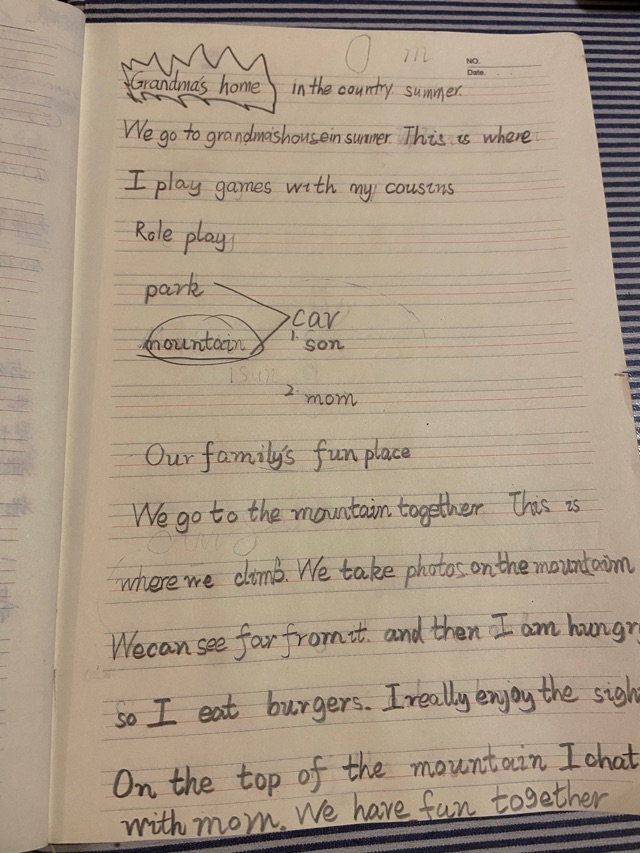 O m
NO.
Date.
Grandma's home in the country. summer.
We go to grandma's house in summer. This is where
I play games with my cousins
Role play
park
car
mountain
1. son
2. mom
Our family's fun place
We go to the mountain together. This is
where we climb. We take photos on the mountain
We can see far from it. and then I am hungr
so I eat burgers. I really enjoy the sigh
On the top of the mountain I chat
with mom. We have fun together